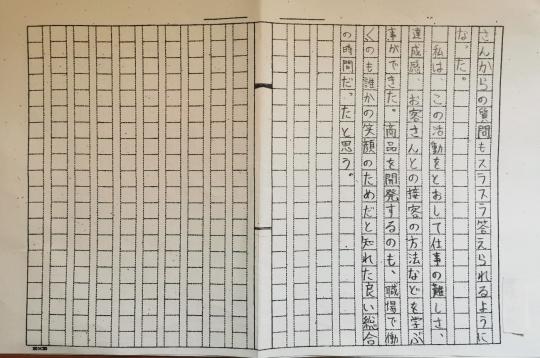 さんからの質問もスラスラ答えられるように
なった。
私は、この活動をとおして仕事の難しさ、
達成感、お客さんとの接客の方法などを学ぶ
事ができた。商品を開発するのも、職場で働
くのも誰かの笑顔のためだと知れた良い総合
の時間だったと思う。